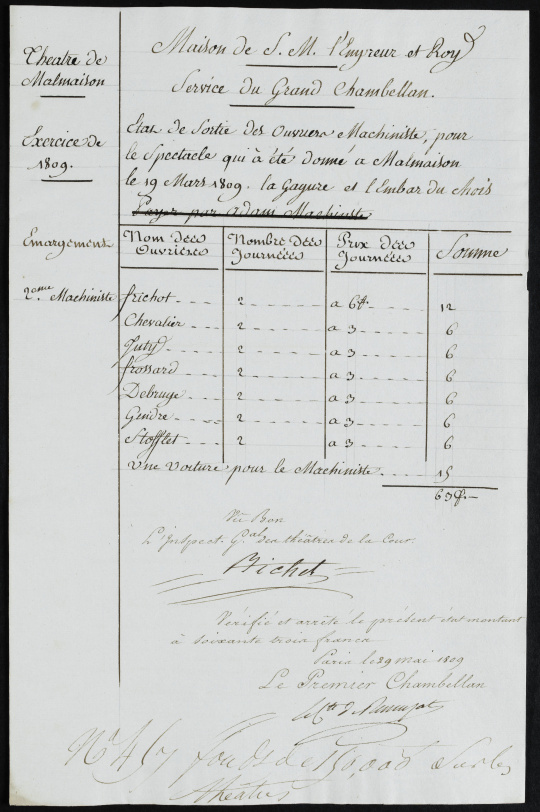 Maison de S. M. l'Empreur et Roy
Service du Grand Chambellan.
Theatre de
Malmaison
Exercice de
1809.
Etat de Sortie des Ouvriers Machiniste, pour
le Spectacle qui à été donné a Malmaison
le 19 Mars 1809. la Gagure et l'Embar du Chois
Payer par Adam Machiniste
Emargement
Nom dees Ouvrières | Nombre dees Journéees | Prix dees Journéees | Somme
2eme Machiniste frichot 2 a 6f. 12
Chevalier 2 a 3 6
Juty 2 a 3 6
frossard 2 a 3 6
Debruye 2 a 3 6
Gendre 2 a 3 6
Stofflet 2 a 3 6
une voiture pour le Machiniste 15
63f.
Vu Bon
L'Inspect. Gal des théâtres de la Cour.
Bichet
Vérifié et arrêté le présent état montant
à soixante trois francs
Paris le 29 mai 1809
Le Premier Chambellan
No 457 fonds de 150,000 Sur les
théatres